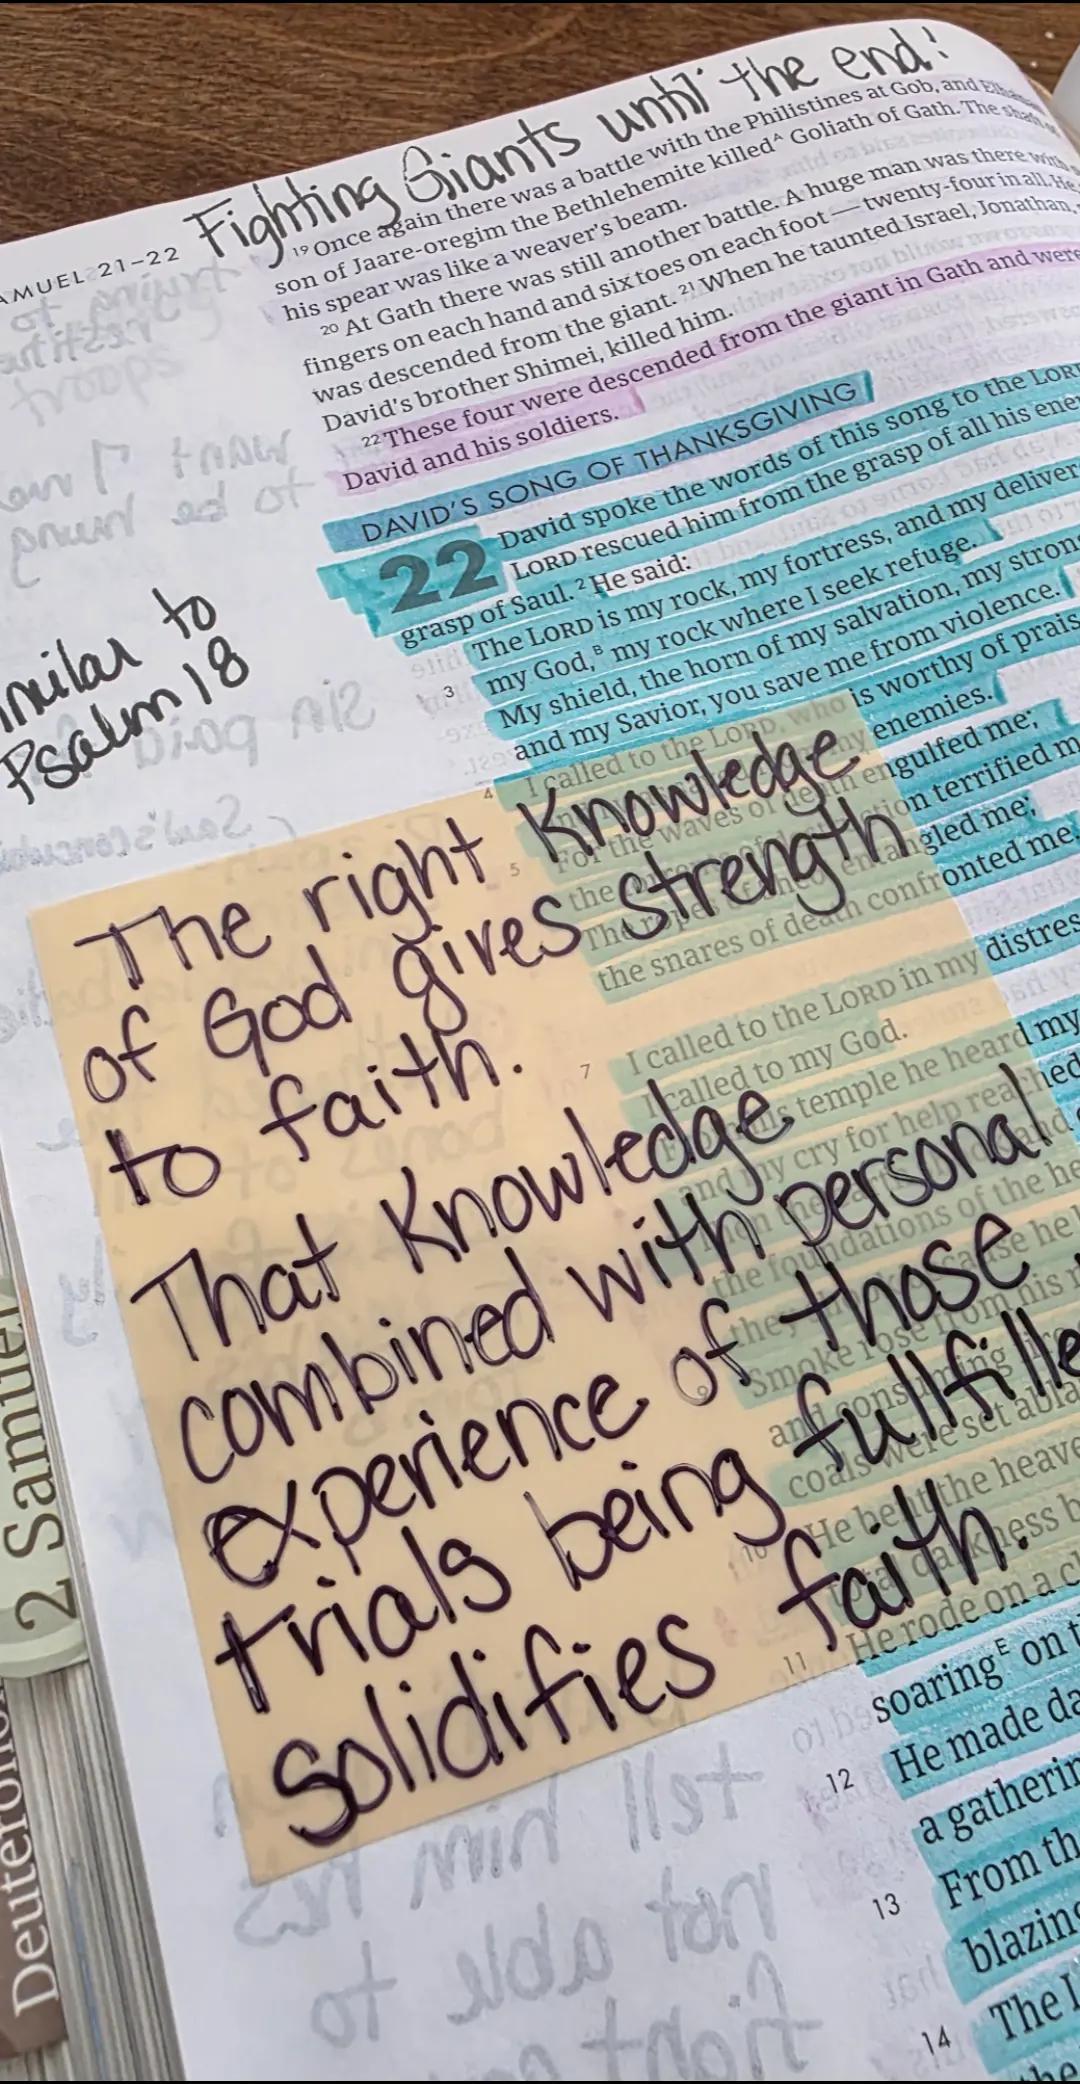 Fighting Giants until the end!
AMUEL 21–22
19 Once again there was a battle with the Philistines at Gob, and
son of Jaare-oregim the Bethlehemite killedA Goliath of Gath. The shaft of
his spear was like a weaver's beam.
20 At Gath there was still another battle. A huge man was there with
fingers on each hand and six toes on each foot — twenty-four in all. He
was descended from the giant. 21 When he taunted Israel, Jonathan,
David's brother Shimei, killed him.
22 These four were descended from the giant in Gath and were
David and his soldiers.
DAVID'S SONG OF THANKSGIVING
22 David spoke the words of this song to the LORD
LORD rescued him from the grasp of all his ene
grasp of Saul. 2 He said:
The LORD is my rock, my fortress, and my deliver
my God,B my rock where I seek refuge.
3 My shield, the horn of my salvation, my stron
and my Savior, you save me from violence.
4 I called to the LORD, who is worthy of prais
enemies.
5 For the waves of death engulfed me;
the tion terrified m
The ropes entangled me;
the snares of death confronted me.
7 I called to the LORD in my distres
I called to my God.
temple he heard my
and my cry for help reached
the foundations of the he
they because he
Smoke rose from his
and consuming
coals were set abla
10 He bent the heave
darkness b
11 He rode on a c
soaringE on t
12 He made da
a gatherin
From th
13 blazing
14 The L
the
milar to
Psalm 18
The right Knowledge
of God gives strength
to faith.
That Knowledge
combined with personal
experience of those
trials being fullfille
solidifies faith.
2 Samuel
Deuterono